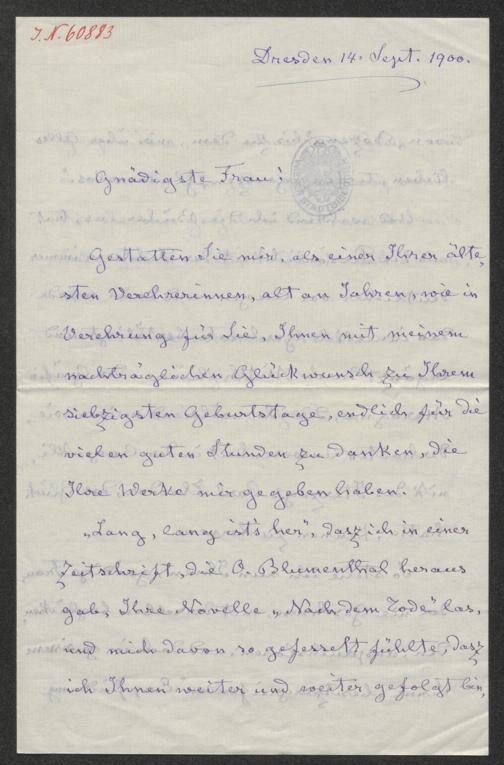 J.N. 60883
Dresden 14. Sept. 1900.
Gnädigste Frau!
Gestatten Sie mir, als einer Ihrer älte,
sten Verehrerinnen, alt an Jahren, wie in
Verehrung für Sie, Ihnen mit meinem
nachträglichen Glückwunsch zu Ihrem
siebzigsten Geburtstage, endlich für die
vielen guten Stunden zu danken, die
Ihre Werke mir gegeben haben.
„Lang, lang ist's her", dasz ich in einer
Zeitschrift, die O. Blumenthal heraus
gab, Ihre Novelle „Nach dem Tode" las,
und mich davon so gefesselt fühlte, dasz
ich Ihnen weiter und weiter gefolgt bin,